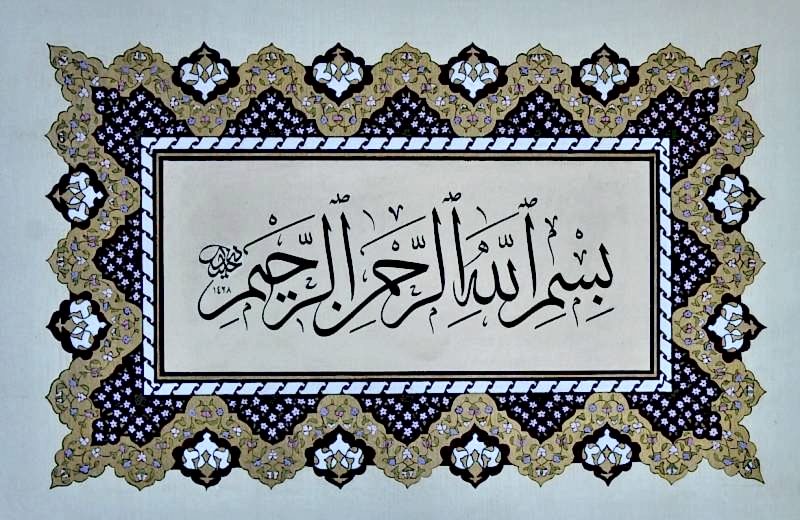 بِسْمِ ٱللَّهِ ٱلرَّحْمَٰنِ ٱلرَّحِيمِ
١٤٢٨